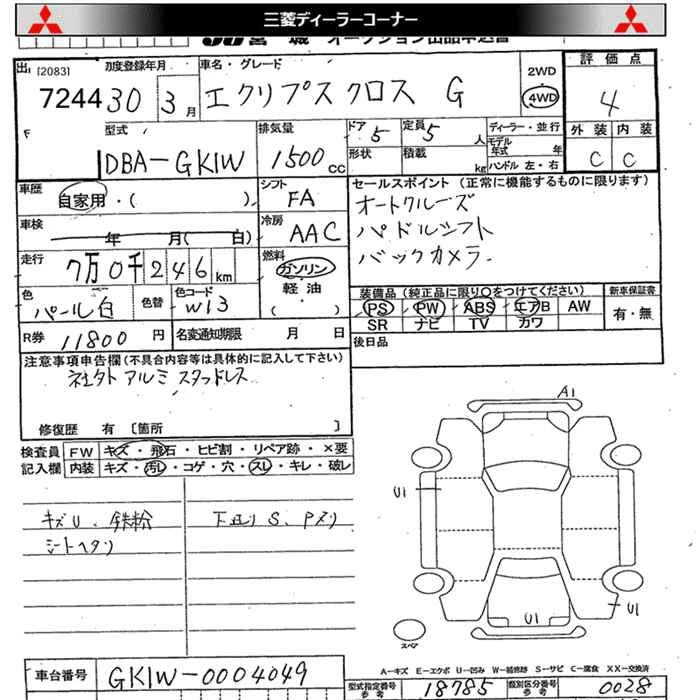 三菱ディーラーコーナー
出 [2083] 初度登録年月 車名・グレード 2WD 評価点
7244 30 3月 エクリプス クロス G 4WD 4
F 型式 排気量 ドア 5 定員 5人 ディーラー・並行 外装 内装
DBA-GK1W 1500cc 形状 積載 kg モデル年式 年 ハンドル 左・右 C C
車歴 自家用・( ) シフト FA セールスポイント (正常に機能するものに限ります)
車検 年 月( 日) 冷房 AAC オートクルーズ
パドルシフト
走行 7万0千246km 燃料 ガソリン バックカメラ
軽油
( )
色 パール白 色替 色コード W13 装備品 (純正品に限り〇をつけてください) 新車保証書
PS PW ABS エアB AW 有・無
SR ナビ TV カワ
R券 11800円 名変通知期限 月 日 後日品
注意事項申告欄(不具合内容等は具体的に記入して下さい)
社外アルミ スタッドレス
修復歴 有 [箇所 ]
検査員 FW キズ・飛石・ヒビ割・リペア跡・×要
記入欄 内装 キズ・汚レ・コゲ・穴・スレ・キレ・破レ
キズU、鉄粉 下廻りS、Pヌリ
シートヘタリ
A1
U1
U1
U1
スペア
A-キズ E-エクボ U-凹み W-補修跡 S-サビ C-腐食 XX-交換済
車台番号 GK1W-0004049 型式指定番号 参考 18785 類別区分番号 参考 0028